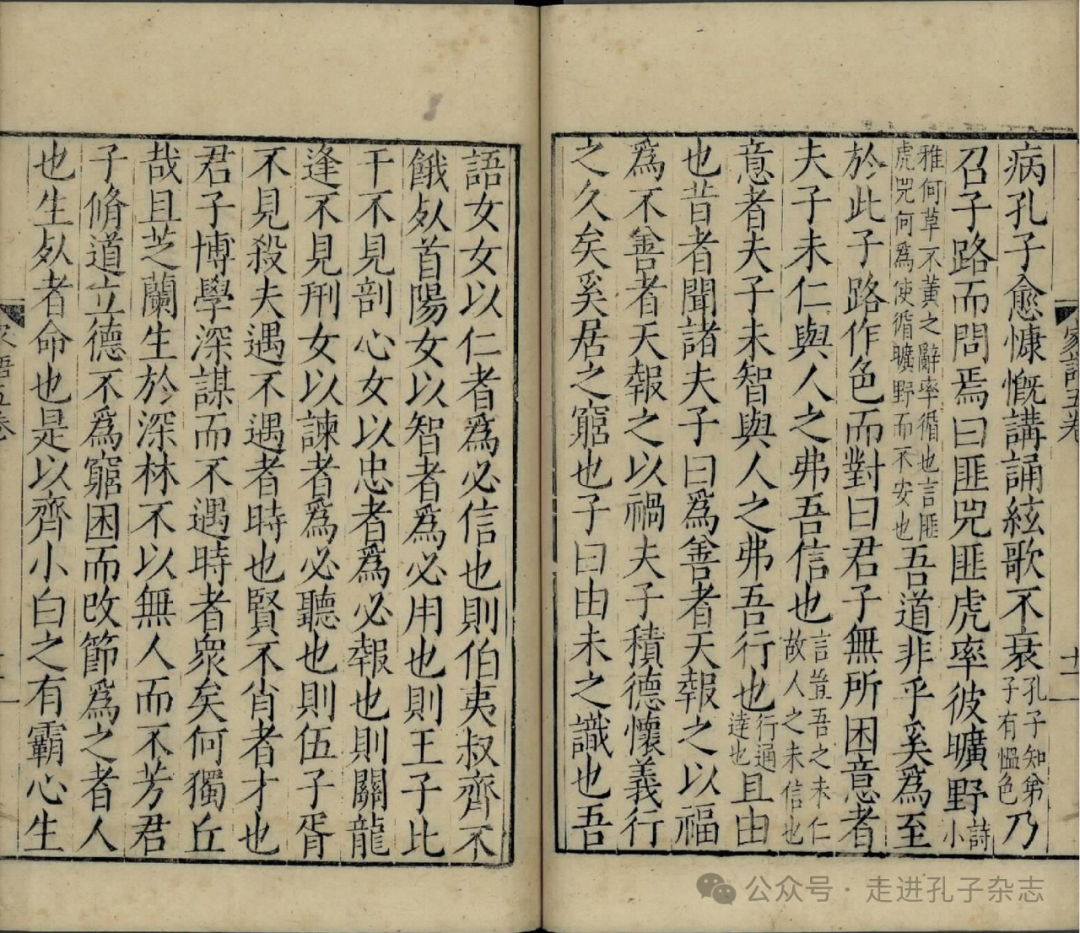 病孔子愈慷慨講誦絃歌不衰孔子知弟子有慍色乃
召子路而問焉曰匪兕匪虎率彼曠野詩小
雅何草不黃之辭率循也言匪虎兕何爲使循曠野而不安也吾道非乎奚爲至
於此子路作色而對曰君子無所困意者
夫子未仁與人之弗吾信也言豈吾之未仁故人之未信也
意者夫子未智與人之弗吾行也行通達也且由
也昔者聞諸夫子曰爲善者天報之以福
爲不善者天報之以禍夫子積德懷義行
之久矣奚居之窮也子曰由未之識也吾
家語五卷
十一
語女女以仁者爲必信也則伯夷叔齊不
餓死首陽女以智者爲必用也則王子比
干不見剖心女以忠者爲必報也則關龍
逢不見刑女以諫者爲必聽也則伍子胥
不見殺夫遇不遇者時也賢不肖者才也
君子博學深謀而不遇時者衆矣何獨丘
哉且芝蘭生於深林不以無人而不芳君
子脩道立德不爲窮困而改節爲之者人
也生死者命也是以齊小白之有霸心生
家語五卷
公众号·走进孔子杂志